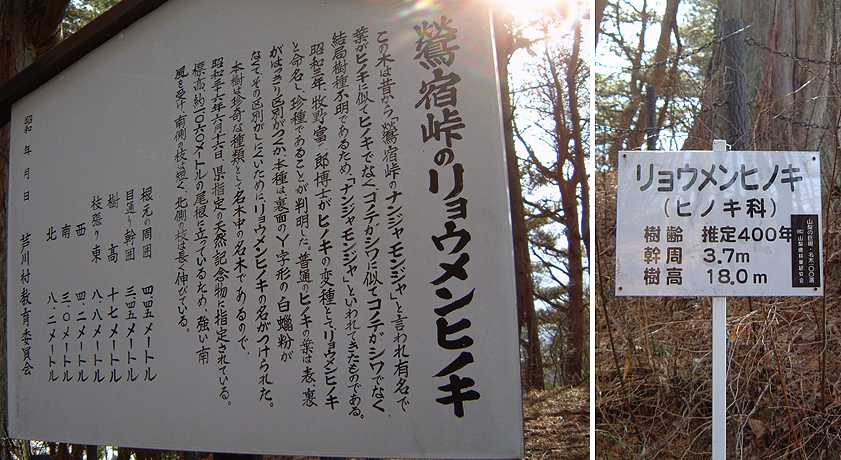 鶯宿峠のリョウメンヒノキ
この木は昔から「鶯宿峠のナンジャモンジャ」と言われ有名で
葉がヒノキに似てヒノキでなく、コノテガシワに似てコノテガシワでなく、
結局樹種不明であるため、「ナンジャモンジャ」といわれてきたものである。
昭和三年、牧野富一郎博士がヒノキの変種としてリョウメンヒノキ
と命名し、珍種であることが判明した。普通のヒノキの葉は表、裏
がはっきり区別がつくが、本種は裏面のY字形の白蠟粉が
なくて、その区別がしにくいためにリョウメンヒノキの名がつけられた。
本樹は珍奇な種類として名木中の名木であるので、
昭和三十六年六月十六日、県指定の天然記念物に指定されている。
標高約一〇六〇メートルの尾根に立っているため、強い南
風を受け、南側の枝は短く、北側の枝は長く伸びている。
根元の周囲 四.五メートル
目通り幹囲 三.四五メートル
樹高 十七メートル
枝張り 東 八.八メートル
西 四.二メートル
南 三.〇メートル
北 八.二メートル
昭和 年 月 日
芦川村教育委員会
リョウメンヒノキ
(ヒノキ科)
樹齢 推定400年
幹周 3.7m
樹高 18.0m